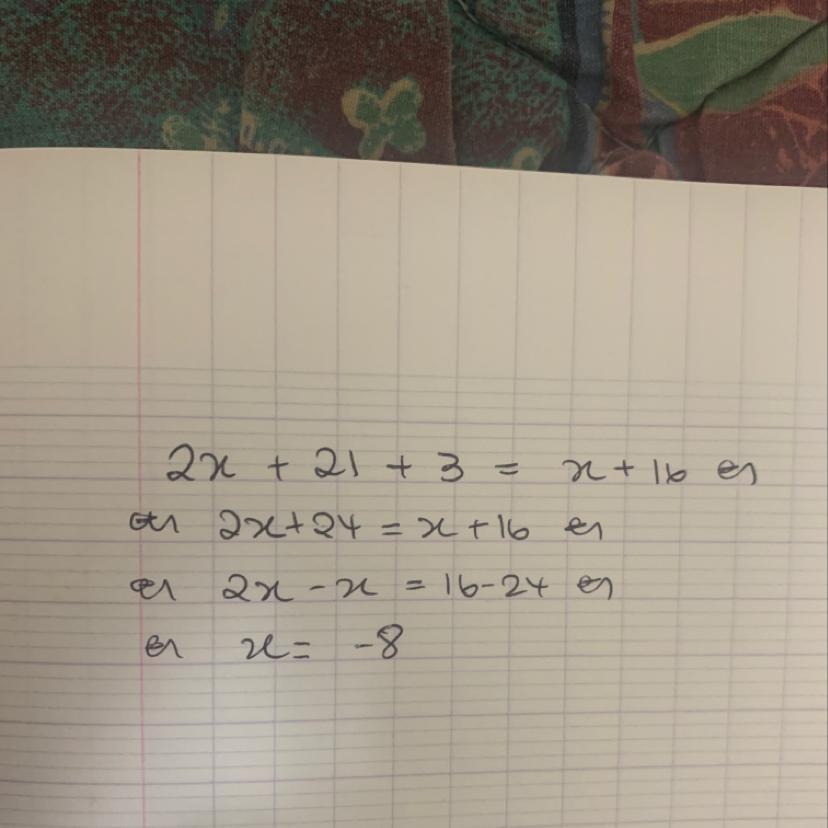 2x + 21 + 3 = x + 16
2x + 24 = x + 16
2x - x = 16 - 24
x = -8